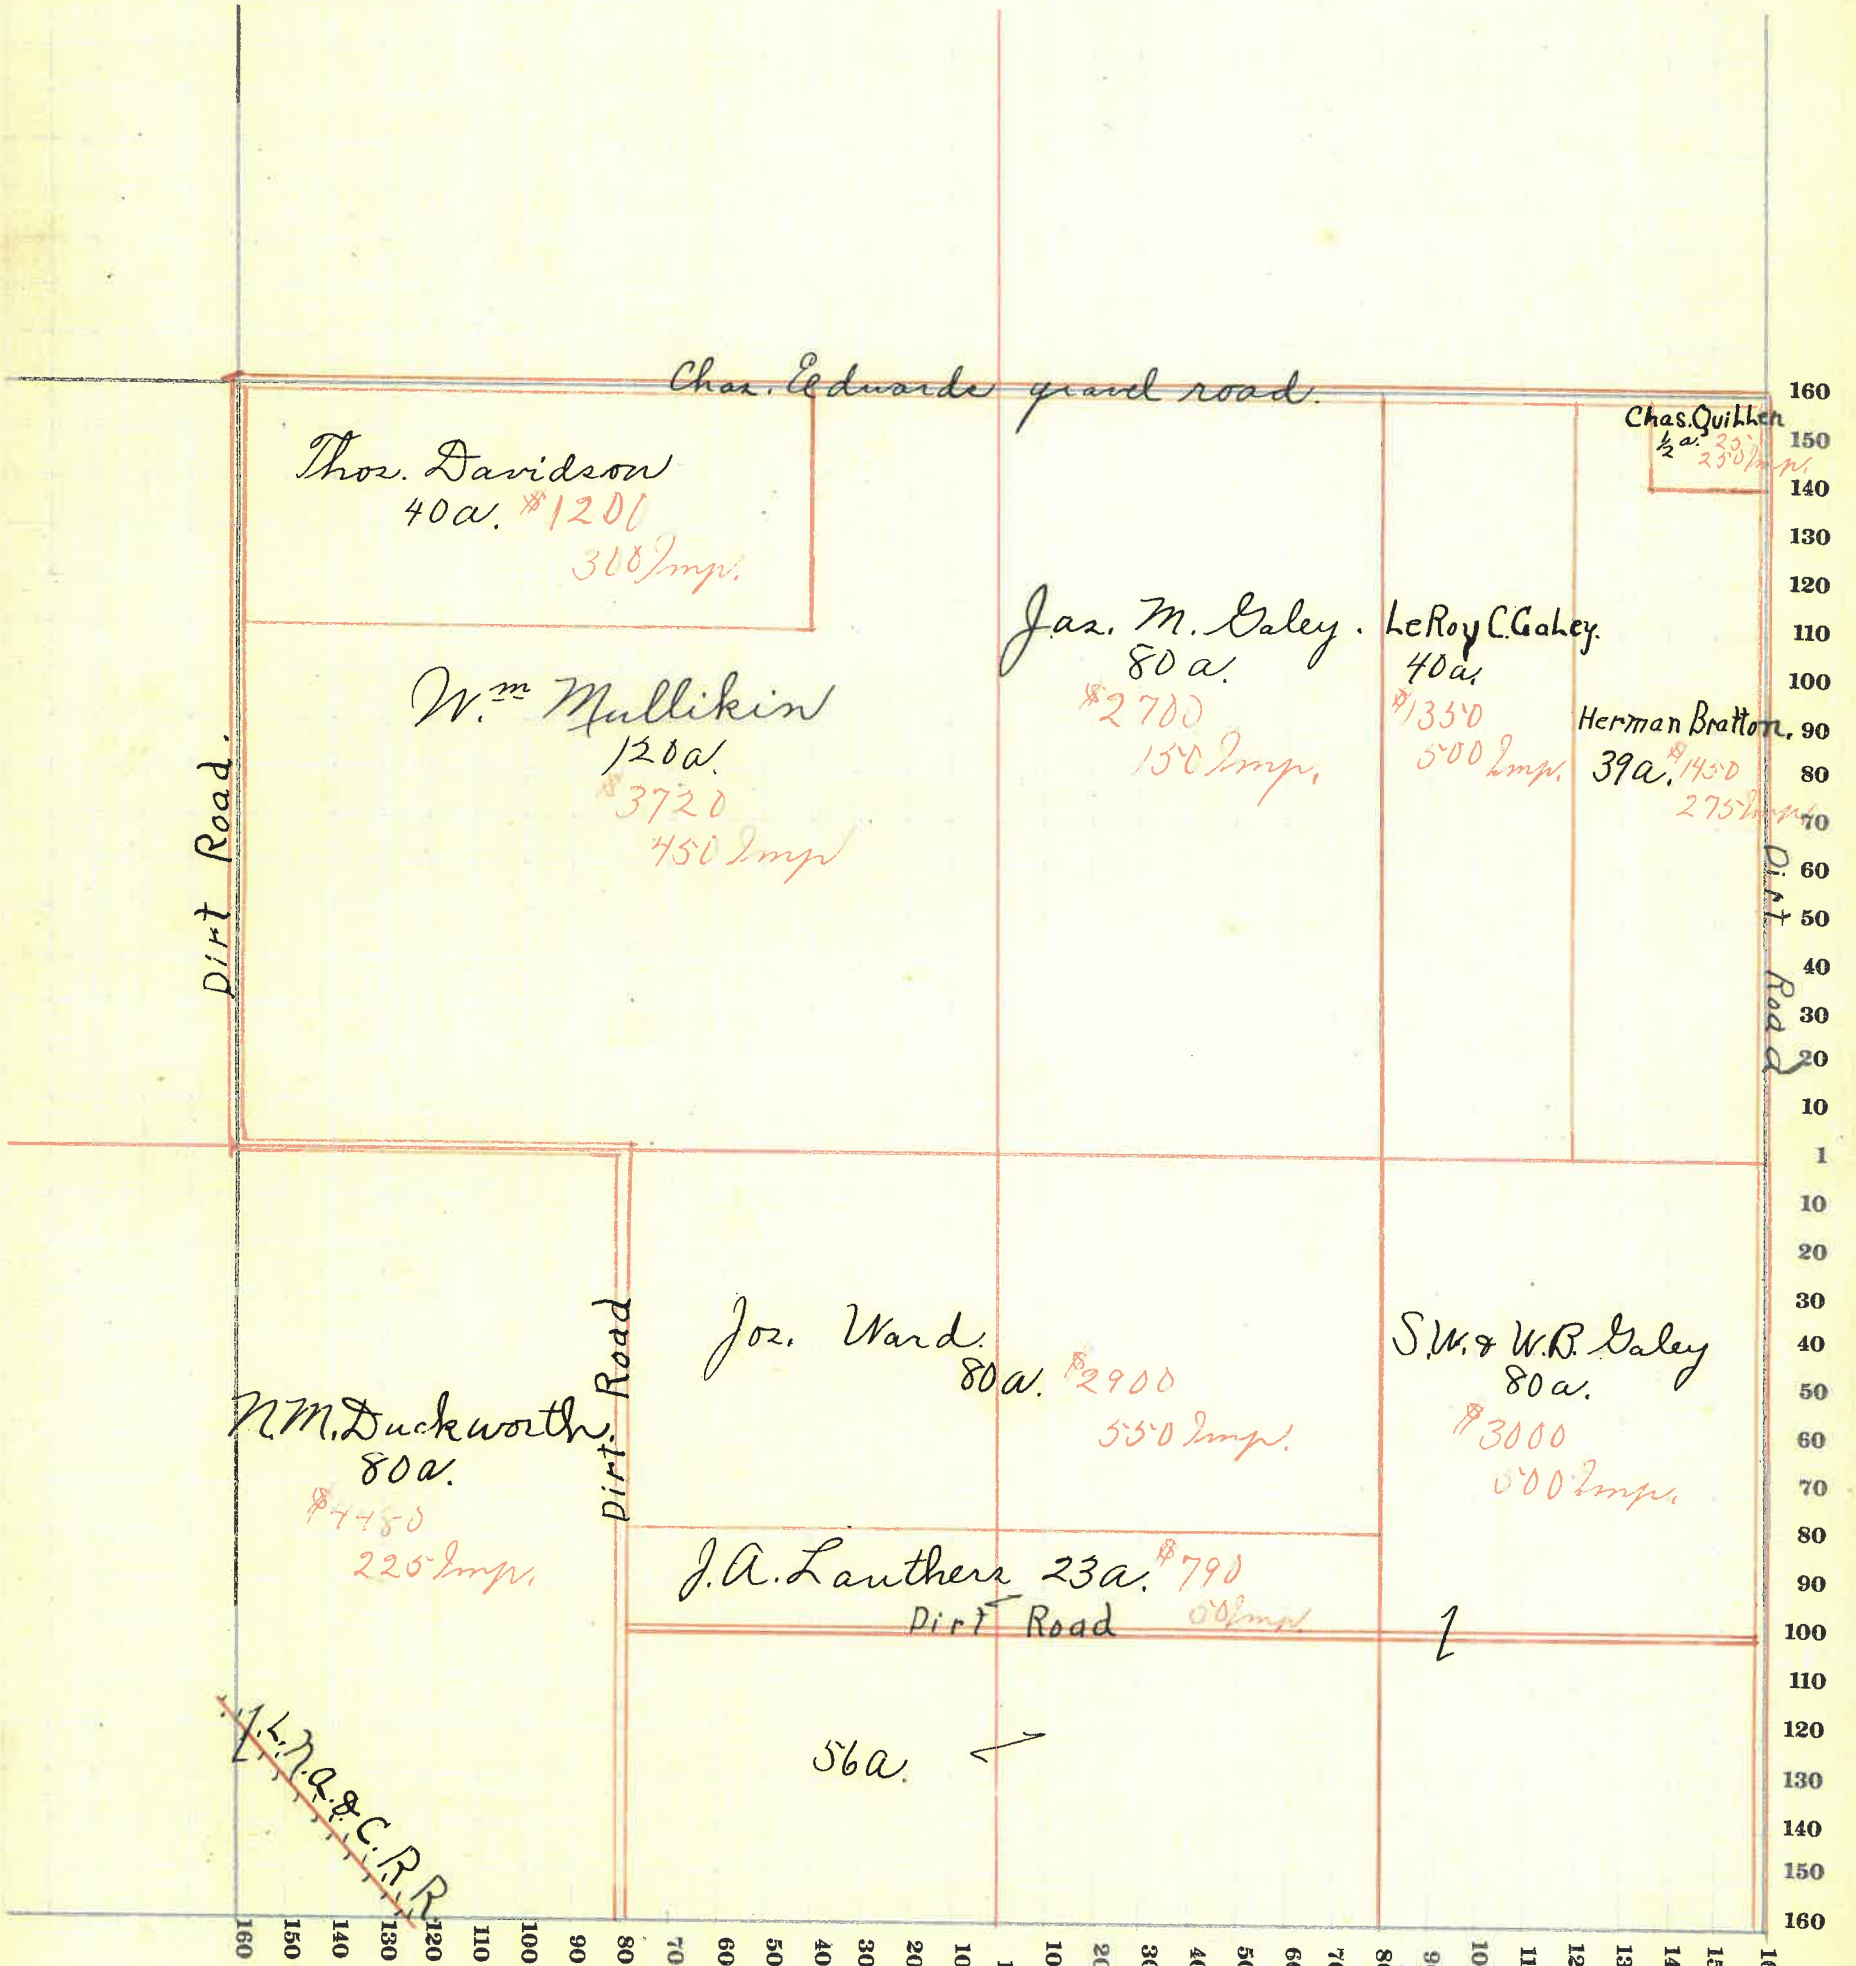 Chas. Edwards gravel road.
Thos. Davidson
40a. $1200
300 Imp.
Chas. Quillen
½ a. 25
250 Imp.
Jas. M. Galey.
80 a.
$2700
150 Imp.
LeRoy C. Galey.
40a.
$1350
500 Imp.
Wm Mullikin
120a.
$3720
450 Imp
Herman Bratton.
39a. $1450
275 Imp.
Dirt Road.
Dirt Road
Dirt Road
Jos. Ward.
80a. $2900
550 Imp.
S.W. & W.B. Galey
80a.
$3000
500 Imp.
N.M. Duckworth.
80a.
$4480
225 Imp.
J.A. Lauthers 23a. $790
50 Imp.
Dirt Road
56a.
L.N.A. & C. R R
160
150
140
130
120
110
100
90
80
70
60
50
40
30
20
10
1
10
20
30
40
50
60
70
80
90
100
110
120
130
140
150
160
160 150 140 130 120 110 100 90 80 70 60 50 40 30 20 10 1 10 20